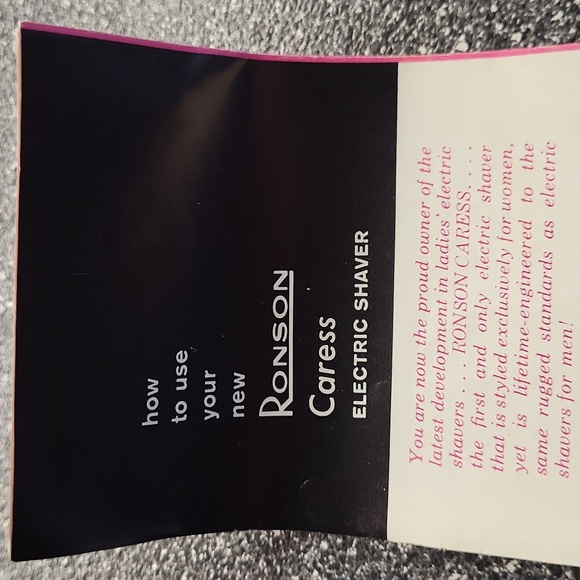 how
to use
your
new
RONSON
Caress
ELECTRIC SHAVER
You are now the proud owner of the
latest development in ladies' electric
shavers . . . . RONSON CARESS . . . .
the first and only electric shaver
that is styled exclusively for women,
yet is lifetime-engineered to the
same rugged standards as electric
shavers for men!